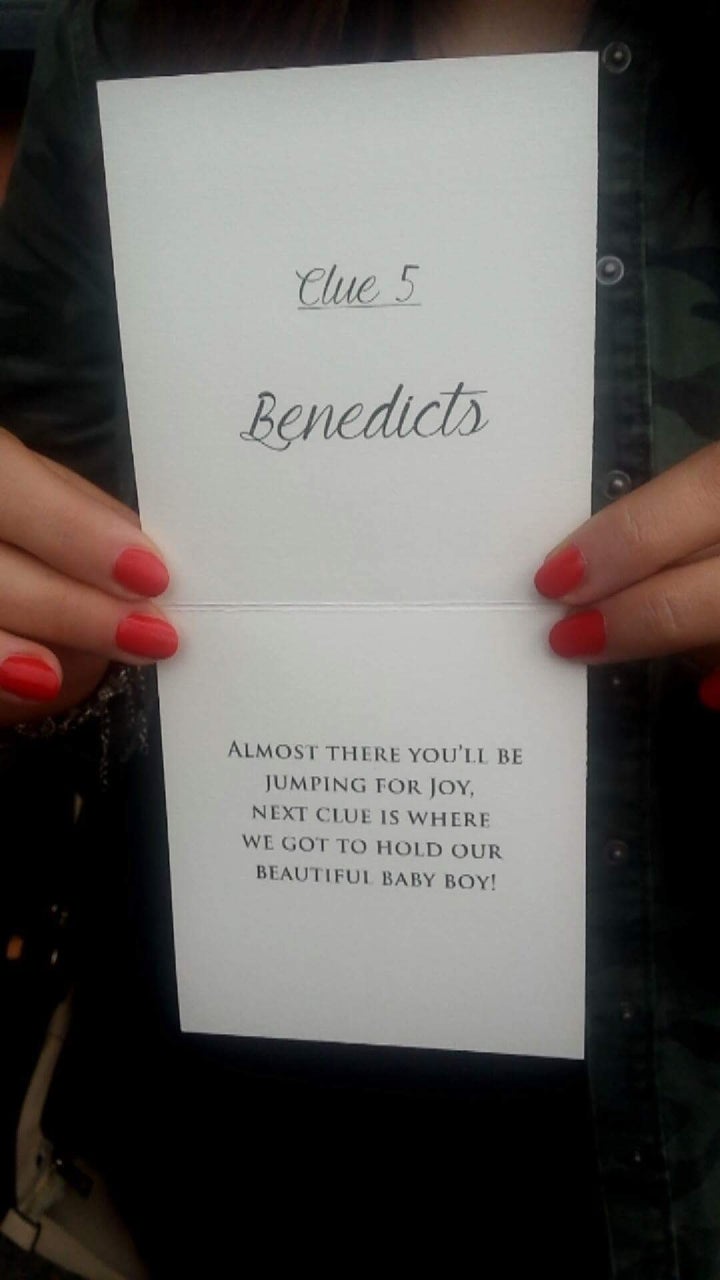 Clue 5
Benedicts
Almost there you'll be
jumping for Joy,
next clue is where
we got to hold our
beautiful baby boy!